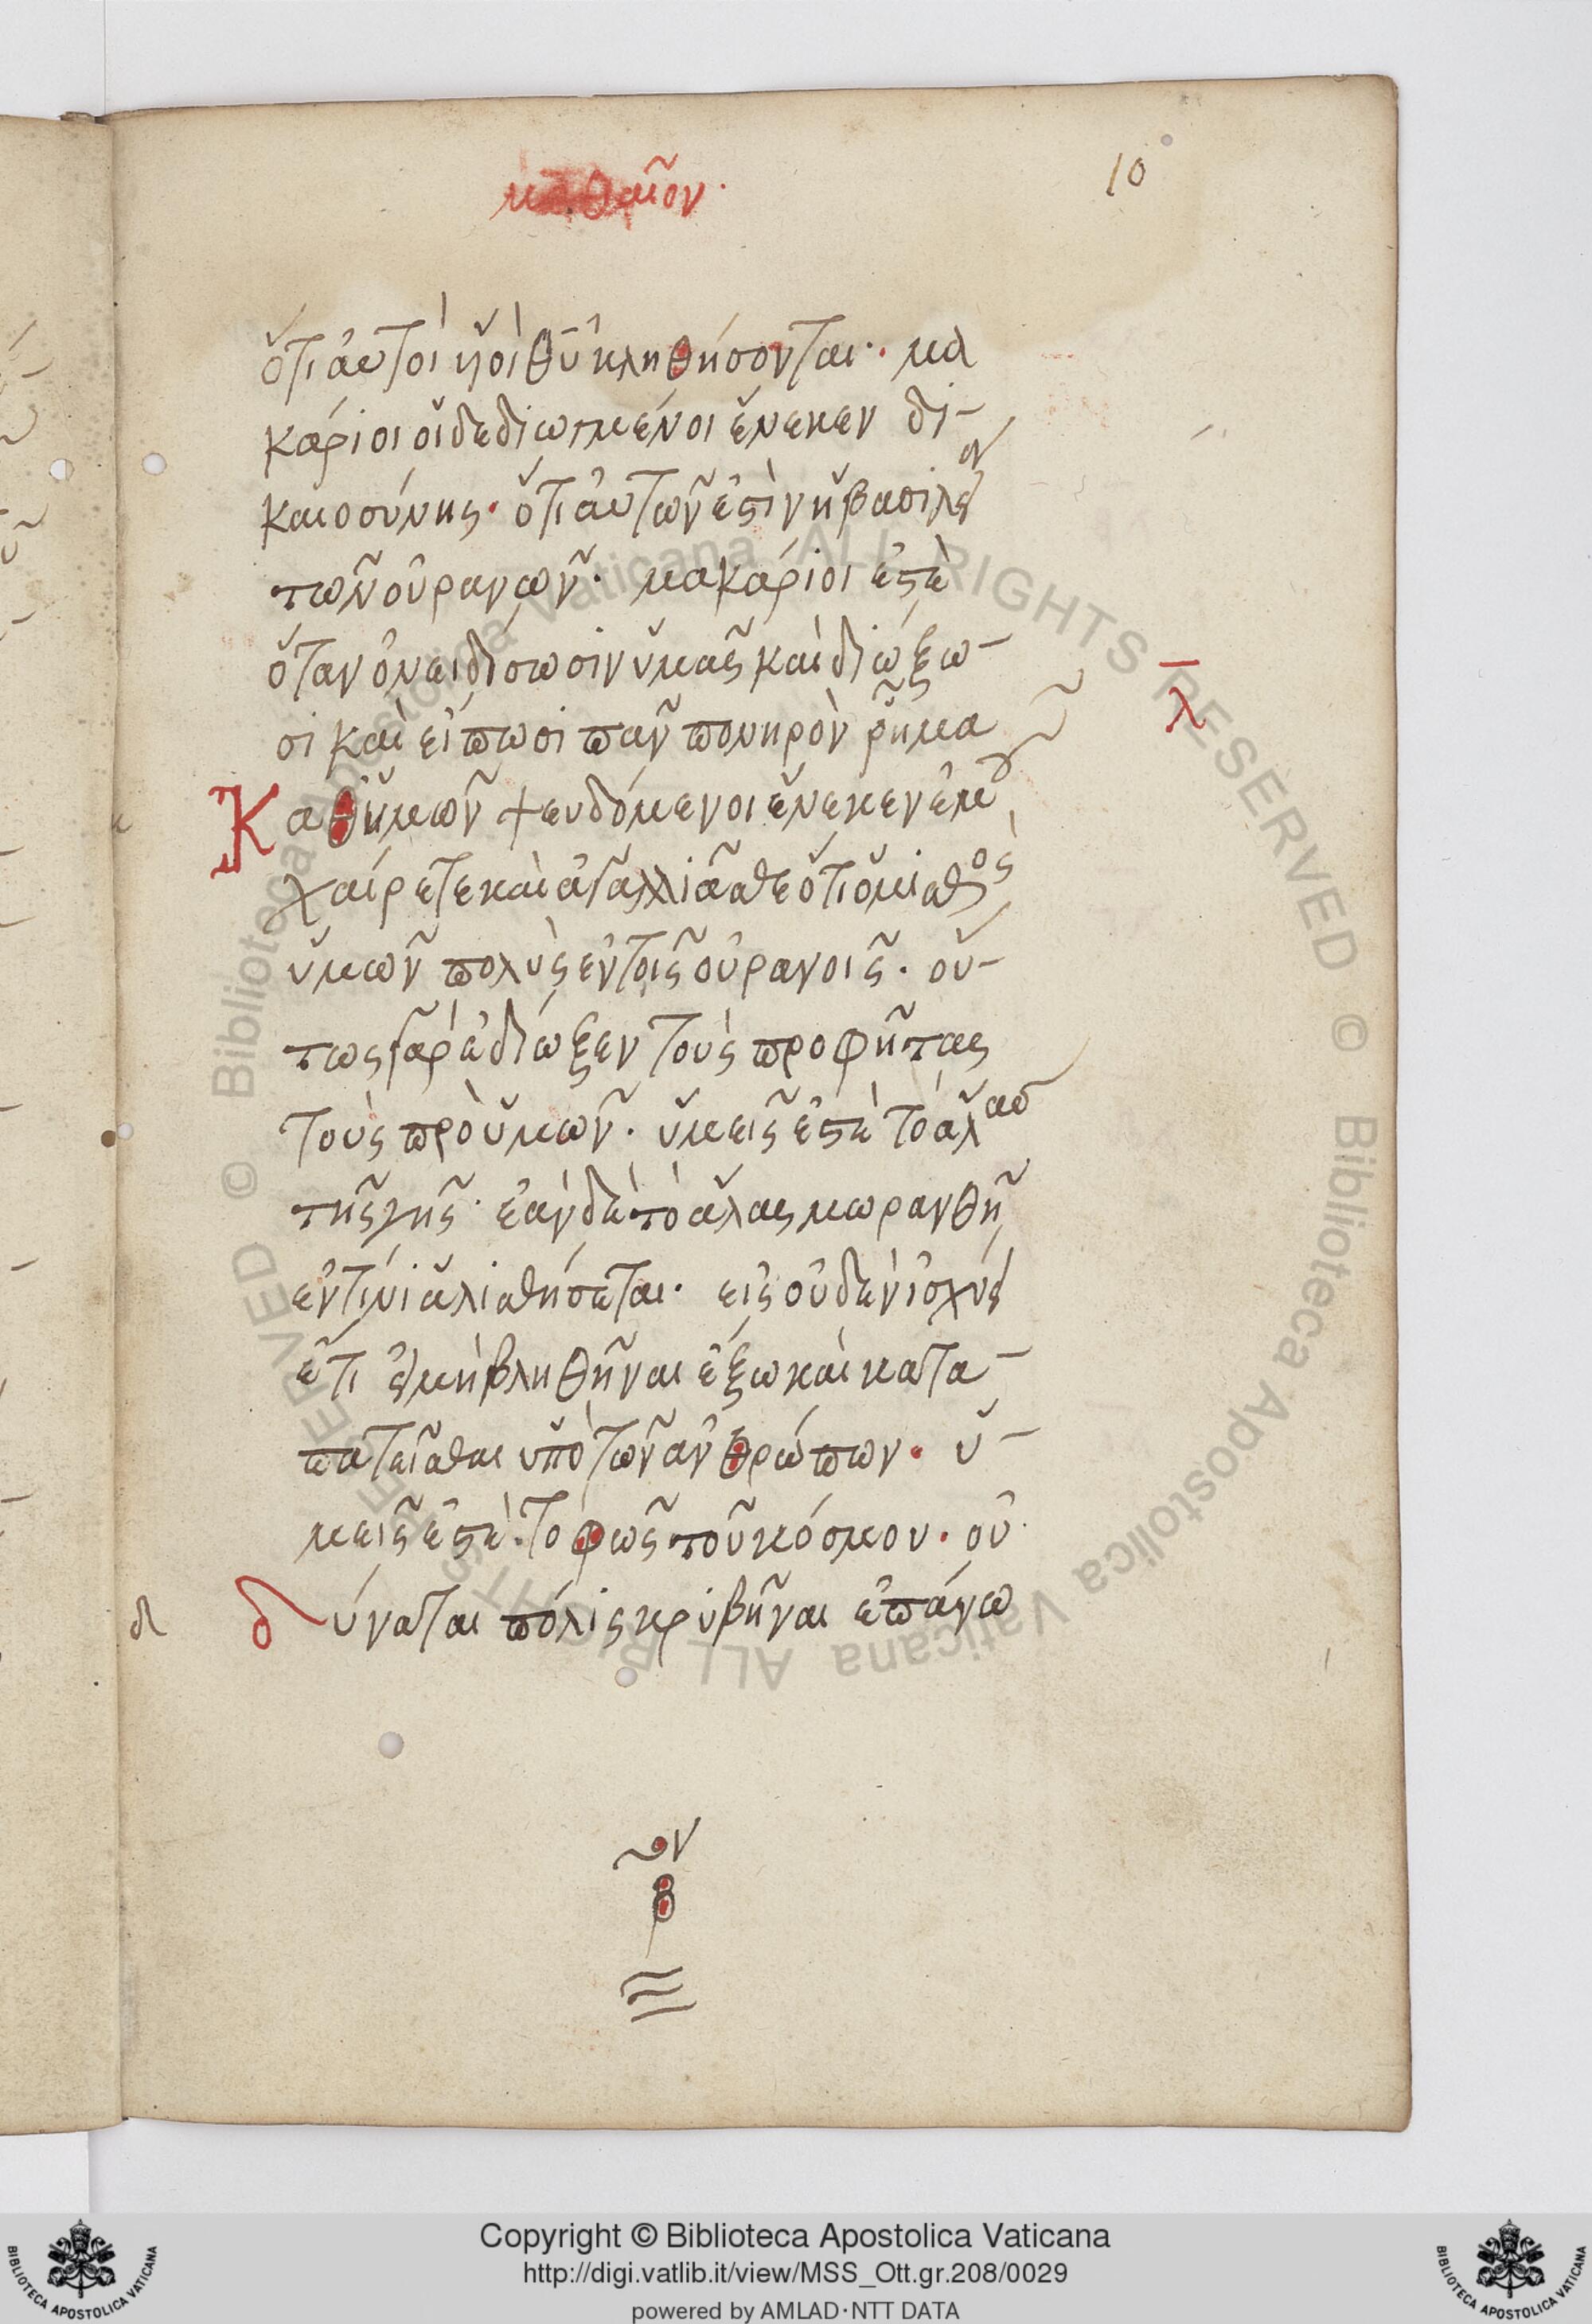 μαθαῖον.
10
ὅτι ἀυτοὶ ὑϊοὶ θ̅υ̅ κληθήσονται· μα
κάριοι οἱ δεδιωγμένοι ἕνεκεν δι-
καιοσύνης· ὅτι ἀυτῶν ἐστὶν ἡ βασιλεία
τῶν οὐρανῶν· μακάριοι ἐστὲ
ὅταν ὀνειδίσωσιν ὑμᾶς καὶ διώξω-
σι καὶ εἴπωσι πᾶν πονηρὸν ῥῆμα
λ̅
Καθ ἡμῶν ψευδόμενοι ἕνεκεν ἐμοῦ
χαίρετε καὶ ἀγαλλιᾶσθε ὅτι ὁ μισθὸς
ὑμῶν πολὺς ἐν τοῖς οὐρανοῖς· οὕ-
τως γὰρ ἐδίωξεν τοὺς προφῆτας
τοὺς πρὸ ὑμῶν· ὑμεῖς ἐστὲ τὸ ἅλας
τῆς γῆς· ἐὰν δὲ τὸ ἅλας μωρανθῆ
ἐν τίνι ἁλισθήσεται· εἰς οὐδὲν ἰσχύει
ἔτι εἰ μὴ βληθῆναι ἔξω καὶ κατα-
πατεῖσθαι ὑπὸ τῶν ἀνθρώπων· ὑ-
μεῖς ἐστὲ· το φῶς τοῦ κόσμου· οὐ
δ
δύναται πόλις κρυβῆναι ἐπάνω
Copyright © Biblioteca Apostolica Vaticana
http://digi.vatlib.it/view/MSS_Ott.gr.208/0029
powered by AMLAD·NTT DATA
BIBLIOTECA APOSTOLICA VATICANA
BIBLIOTECA APOSTOLICA VATICANA
© Biblioteca Apostolica Vaticana ALL RIGHTS RESERVED © Biblioteca Apostolica Vaticana ALL RIGHTS RESERVED